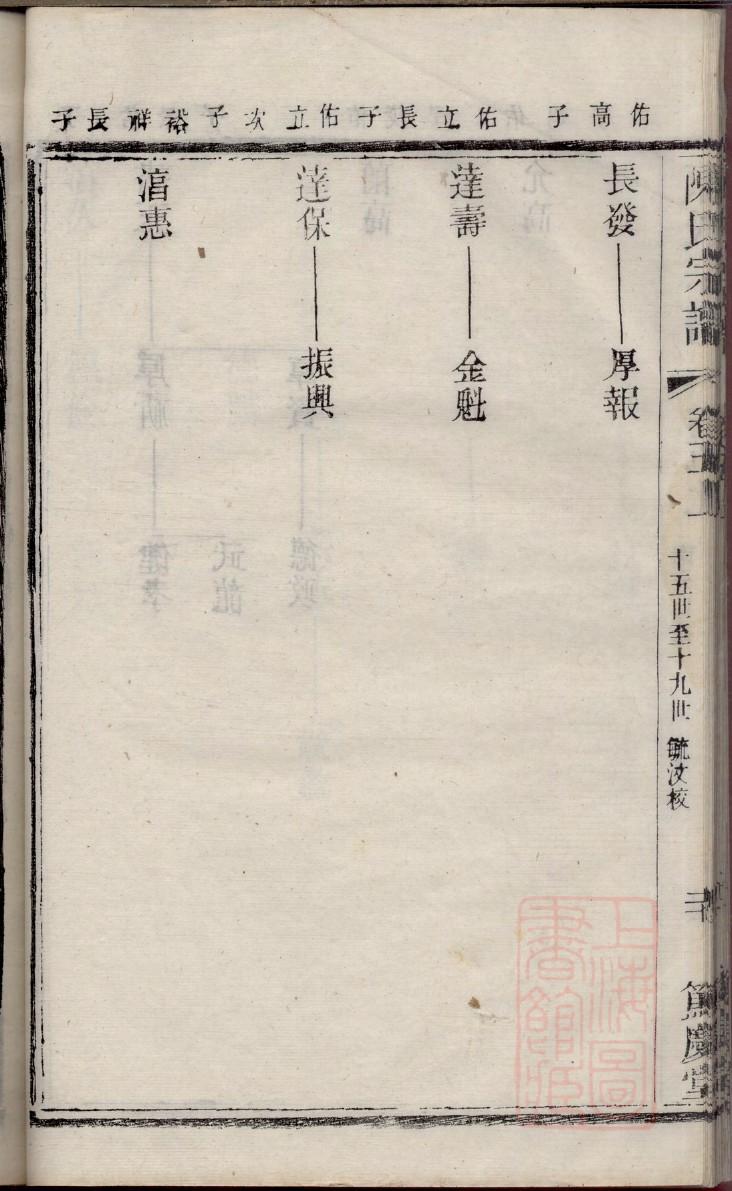 陳氏宗譜
卷五上
十五世至十九世 毓汶校
篤慶堂
佑高子
長發 厚報
佑立長子
達壽 金魁
佑立次子
達保 振興
裕祥長子
惠
上海圖
書館